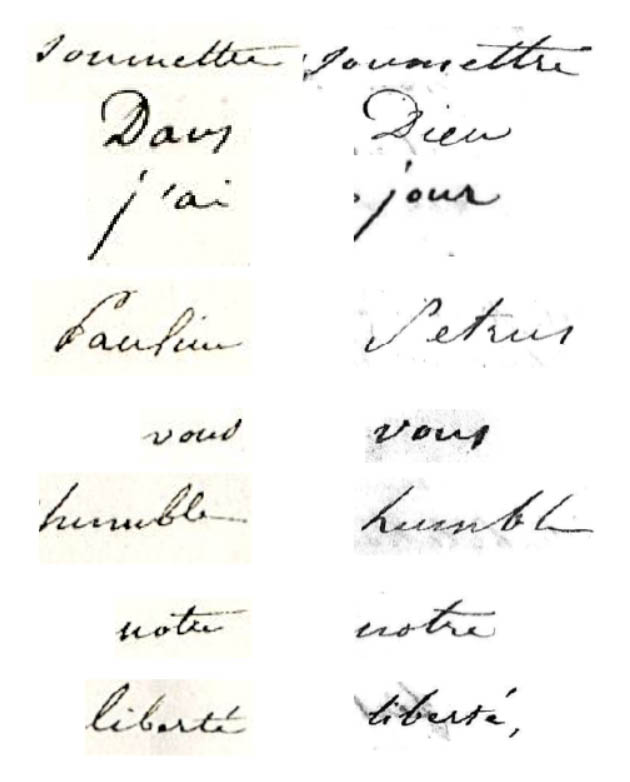 soumettre soumettre
Dans Dieu
j'ai jour
Pauline Petrus
vous vous
humble humble
notre notre
liberté liberté,